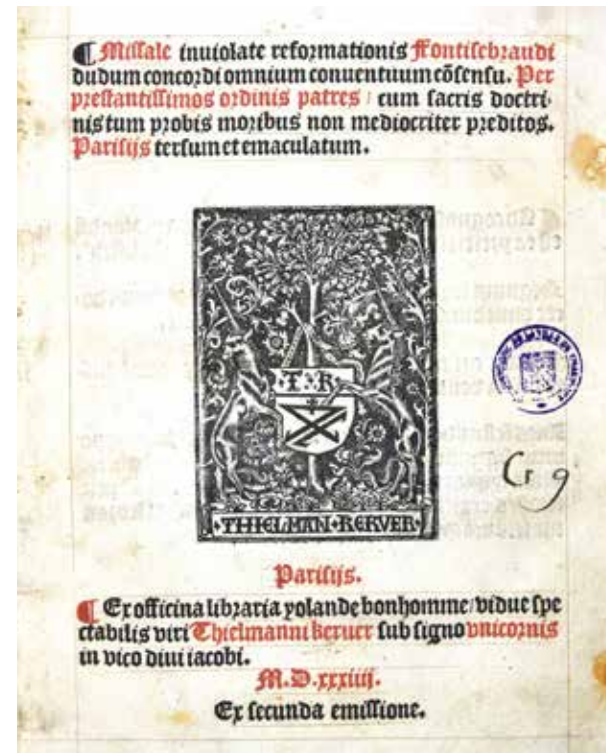 ¶ Missale inuiolate reformationis Fontisebraudi
dudum concordi omnium conuentuum cōsensu. Per
prestantissimos ordinis patres / cum sacris doctri-
nis tum probis moribus non mediocriter preditos.
Parisijs tersum et emaculatum.
·T·K·
·THIELMAN·KERVER·
Cr 9
Parisijs.
¶ Ex officina libraria yolande bonhomme / vidue spe
ctabilis viri Thielmanni keruer sub signo vnicornis
in vico diui iacobi.
M.D.xxxiiij.
Ex secunda emissione.